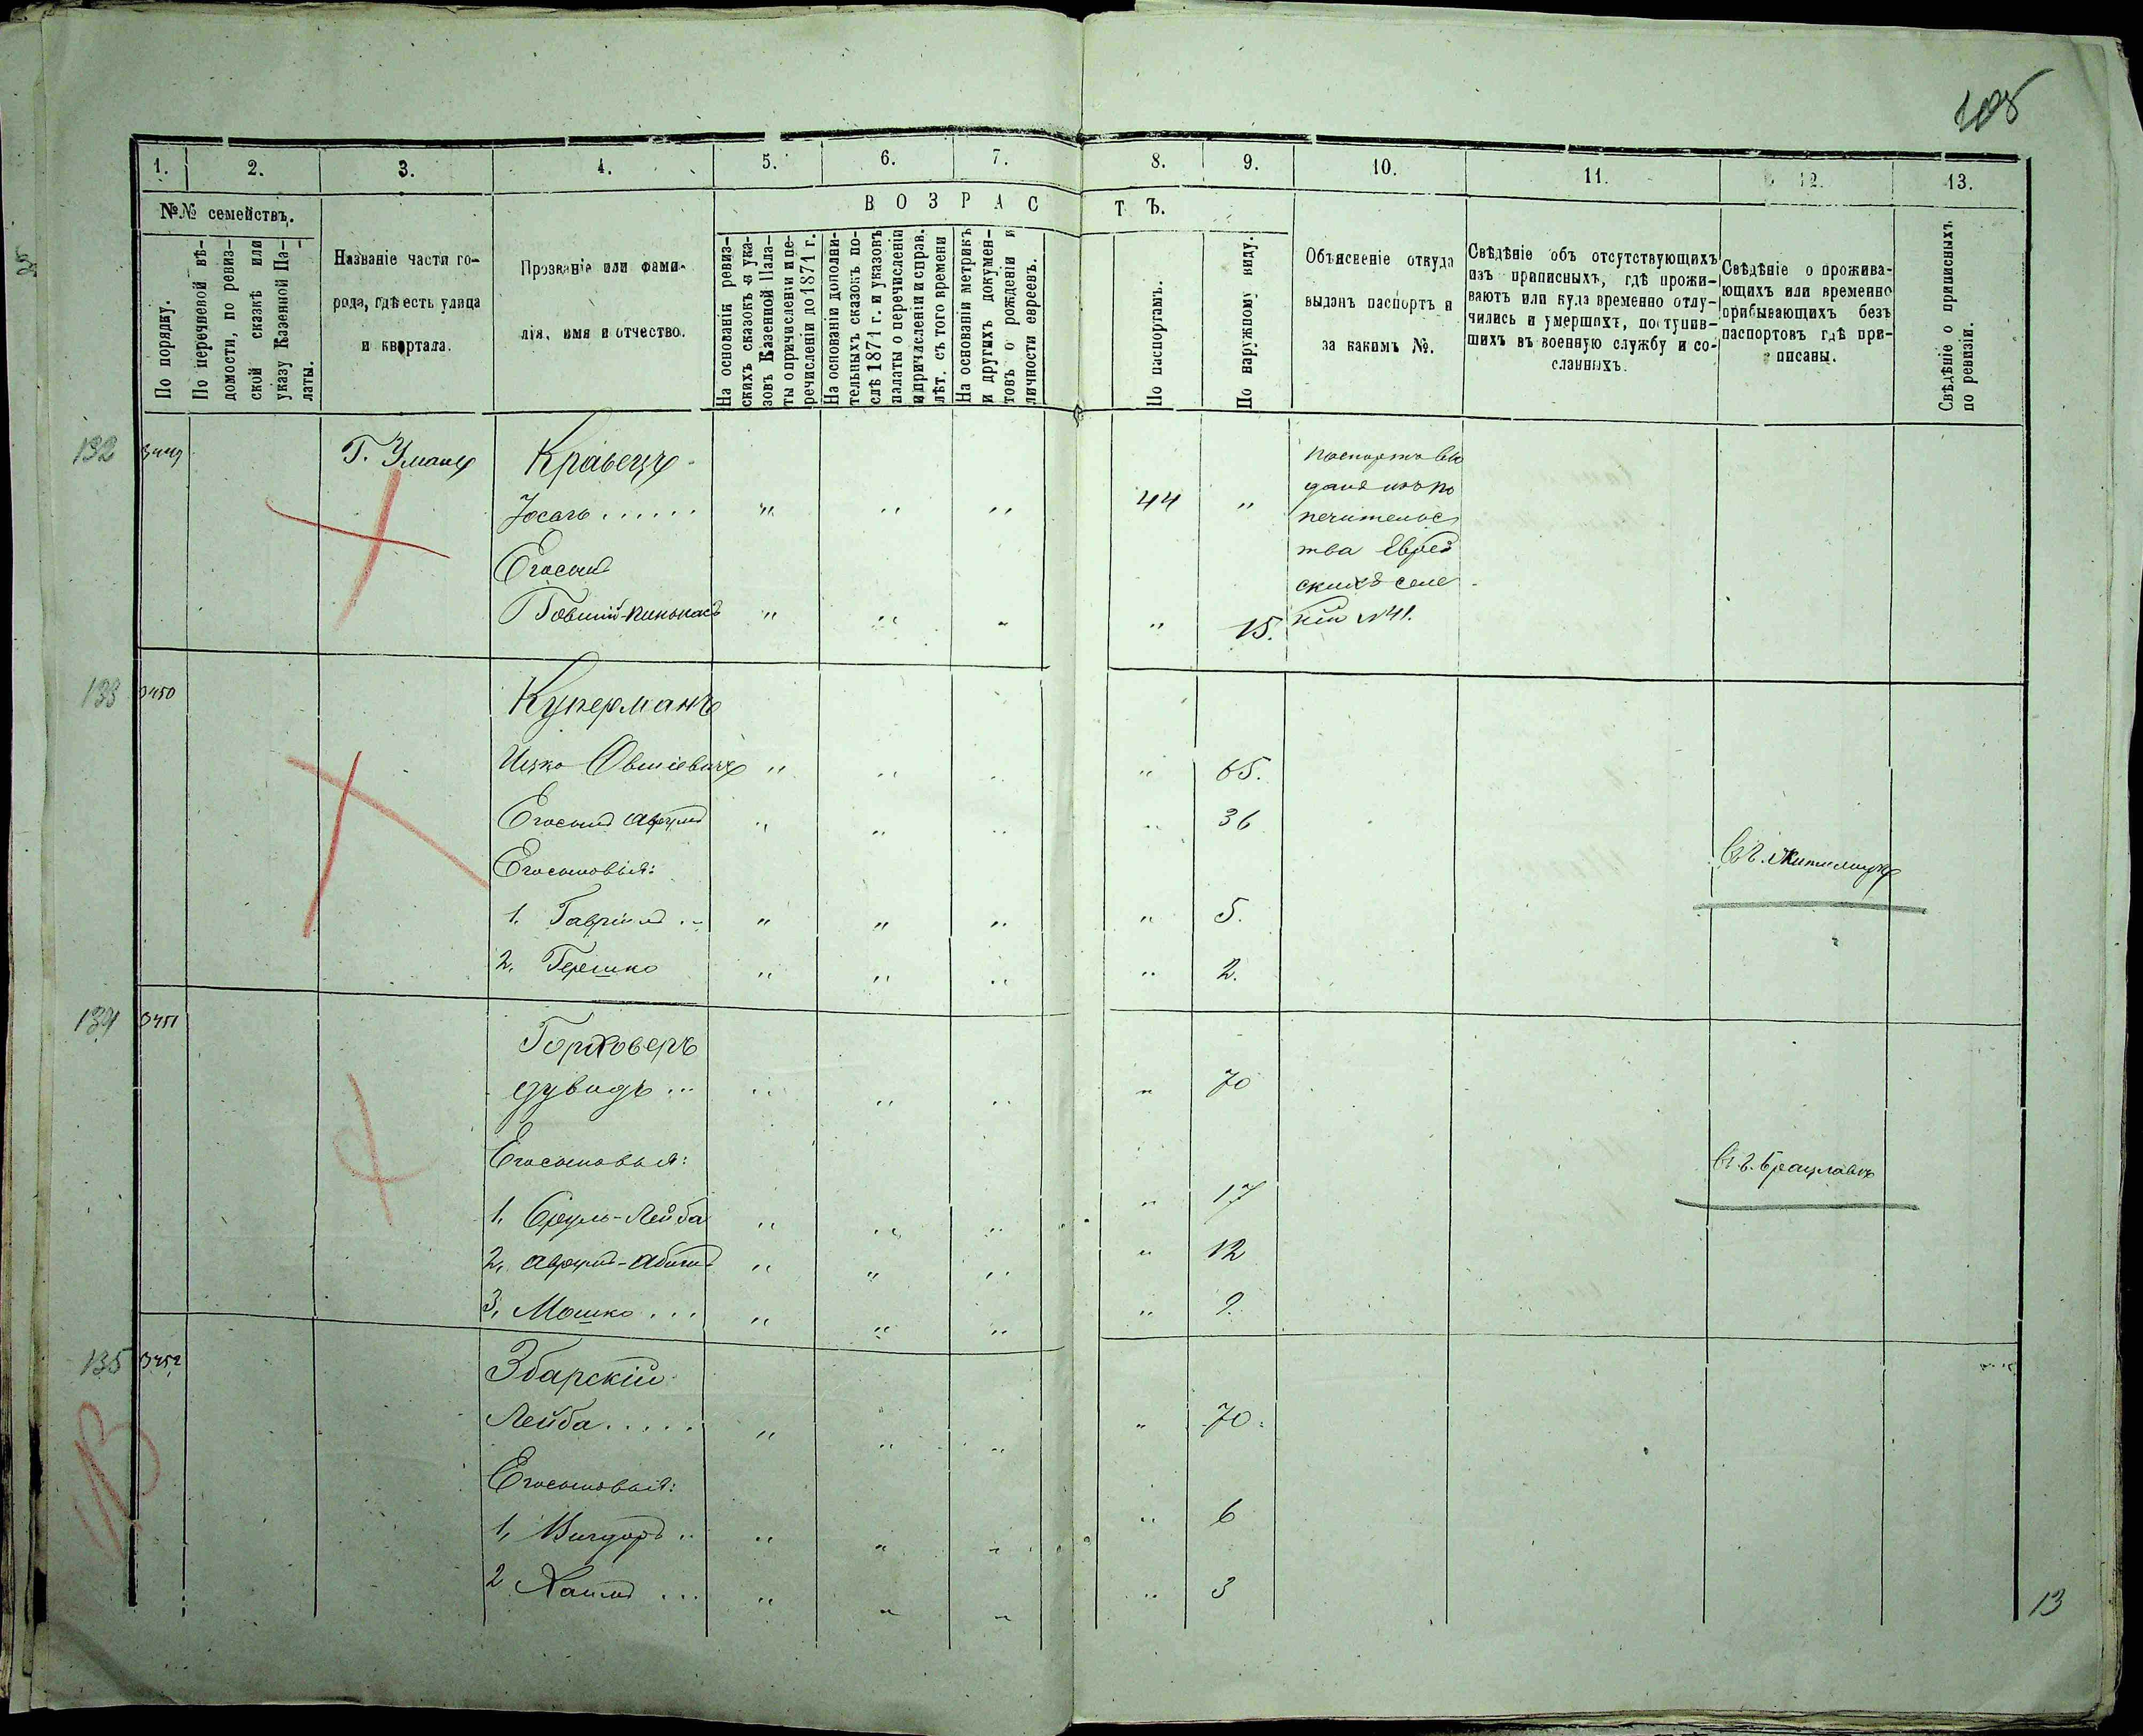 105
1. 2. 3. 4. 5. 6. 7. 8. 9. 10. 11. 12. 13.
№№ семействъ.
По порядку.
По перечневой вѣ-
домости, по ревиз-
ской сказкѣ или
указу Казенной Па-
латы.
Названіе части го-
рода, гдѣ есть улица
и квартала.
Прозваніе или фами-
лія, имя и отчество.
ВОЗРАСТЪ.
На основаніи ревиз-
скихъ сказокъ и ука-
зовъ Казенной Пала-
ты о причисленіи и пе-
речисленіи до 1871 г.
На основаніи дополни-
тельныхъ сказокъ по-
слѣ 1871 г. и указовъ
палаты о перечисленіи
и причисленіи и справ.
лѣт. съ того времени
На основаніи метрикъ
и другихъ докумен-
товъ о рожденіи и
личности евреевъ.
По паспортамъ.
По наружному виду.
Объясненіе откуда
выданъ паспортъ и
за какимъ №.
Свѣдѣніе объ отсутствующихъ
изъ приписныхъ, гдѣ прожи-
ваютъ или куда временно отлу-
чились и умершихъ, поступив-
шихъ въ военную службу и со-
сланныхъ.
Свѣдѣніе о прожива-
ющихъ или временно
прибывающихъ безъ
паспортовъ гдѣ при-
писаны.
Свѣдѣніе о приписныхъ
по ревизіи.
132 3449 Г. Умань Кравецъ
Іосъ ...... " " " 44 "
паспортъ вы
данъ изъ по
печительс
тва Еврей
скихъ селе
ній №41.
Его сынъ
" " " " 15.
133 3450 Куперманъ
Ицко Овшіевичъ " " " " 65.
Его сынъ Аврумъ " " " " 36
Его сыновья:
Въ г. Житомирѣ
1. Гавріилъ .. " " " " 5.
2. Гершко " " " " 2.
134 3451 Горховеръ
Дувидъ ... " " " " 70
Его сыновья:
Въ г. Брацлавѣ
1, Сруль-Лейба " " " " 17
2, Аврумъ-Абамъ " " " " 12
3, Мошко ... " " " " 9.
135 3452 Збарскій
Лейба ..... " " " " 70.
Его сыновья:
1, Вигдоръ .. " " " " 6
2 Хаимъ ... " " " " 3
13